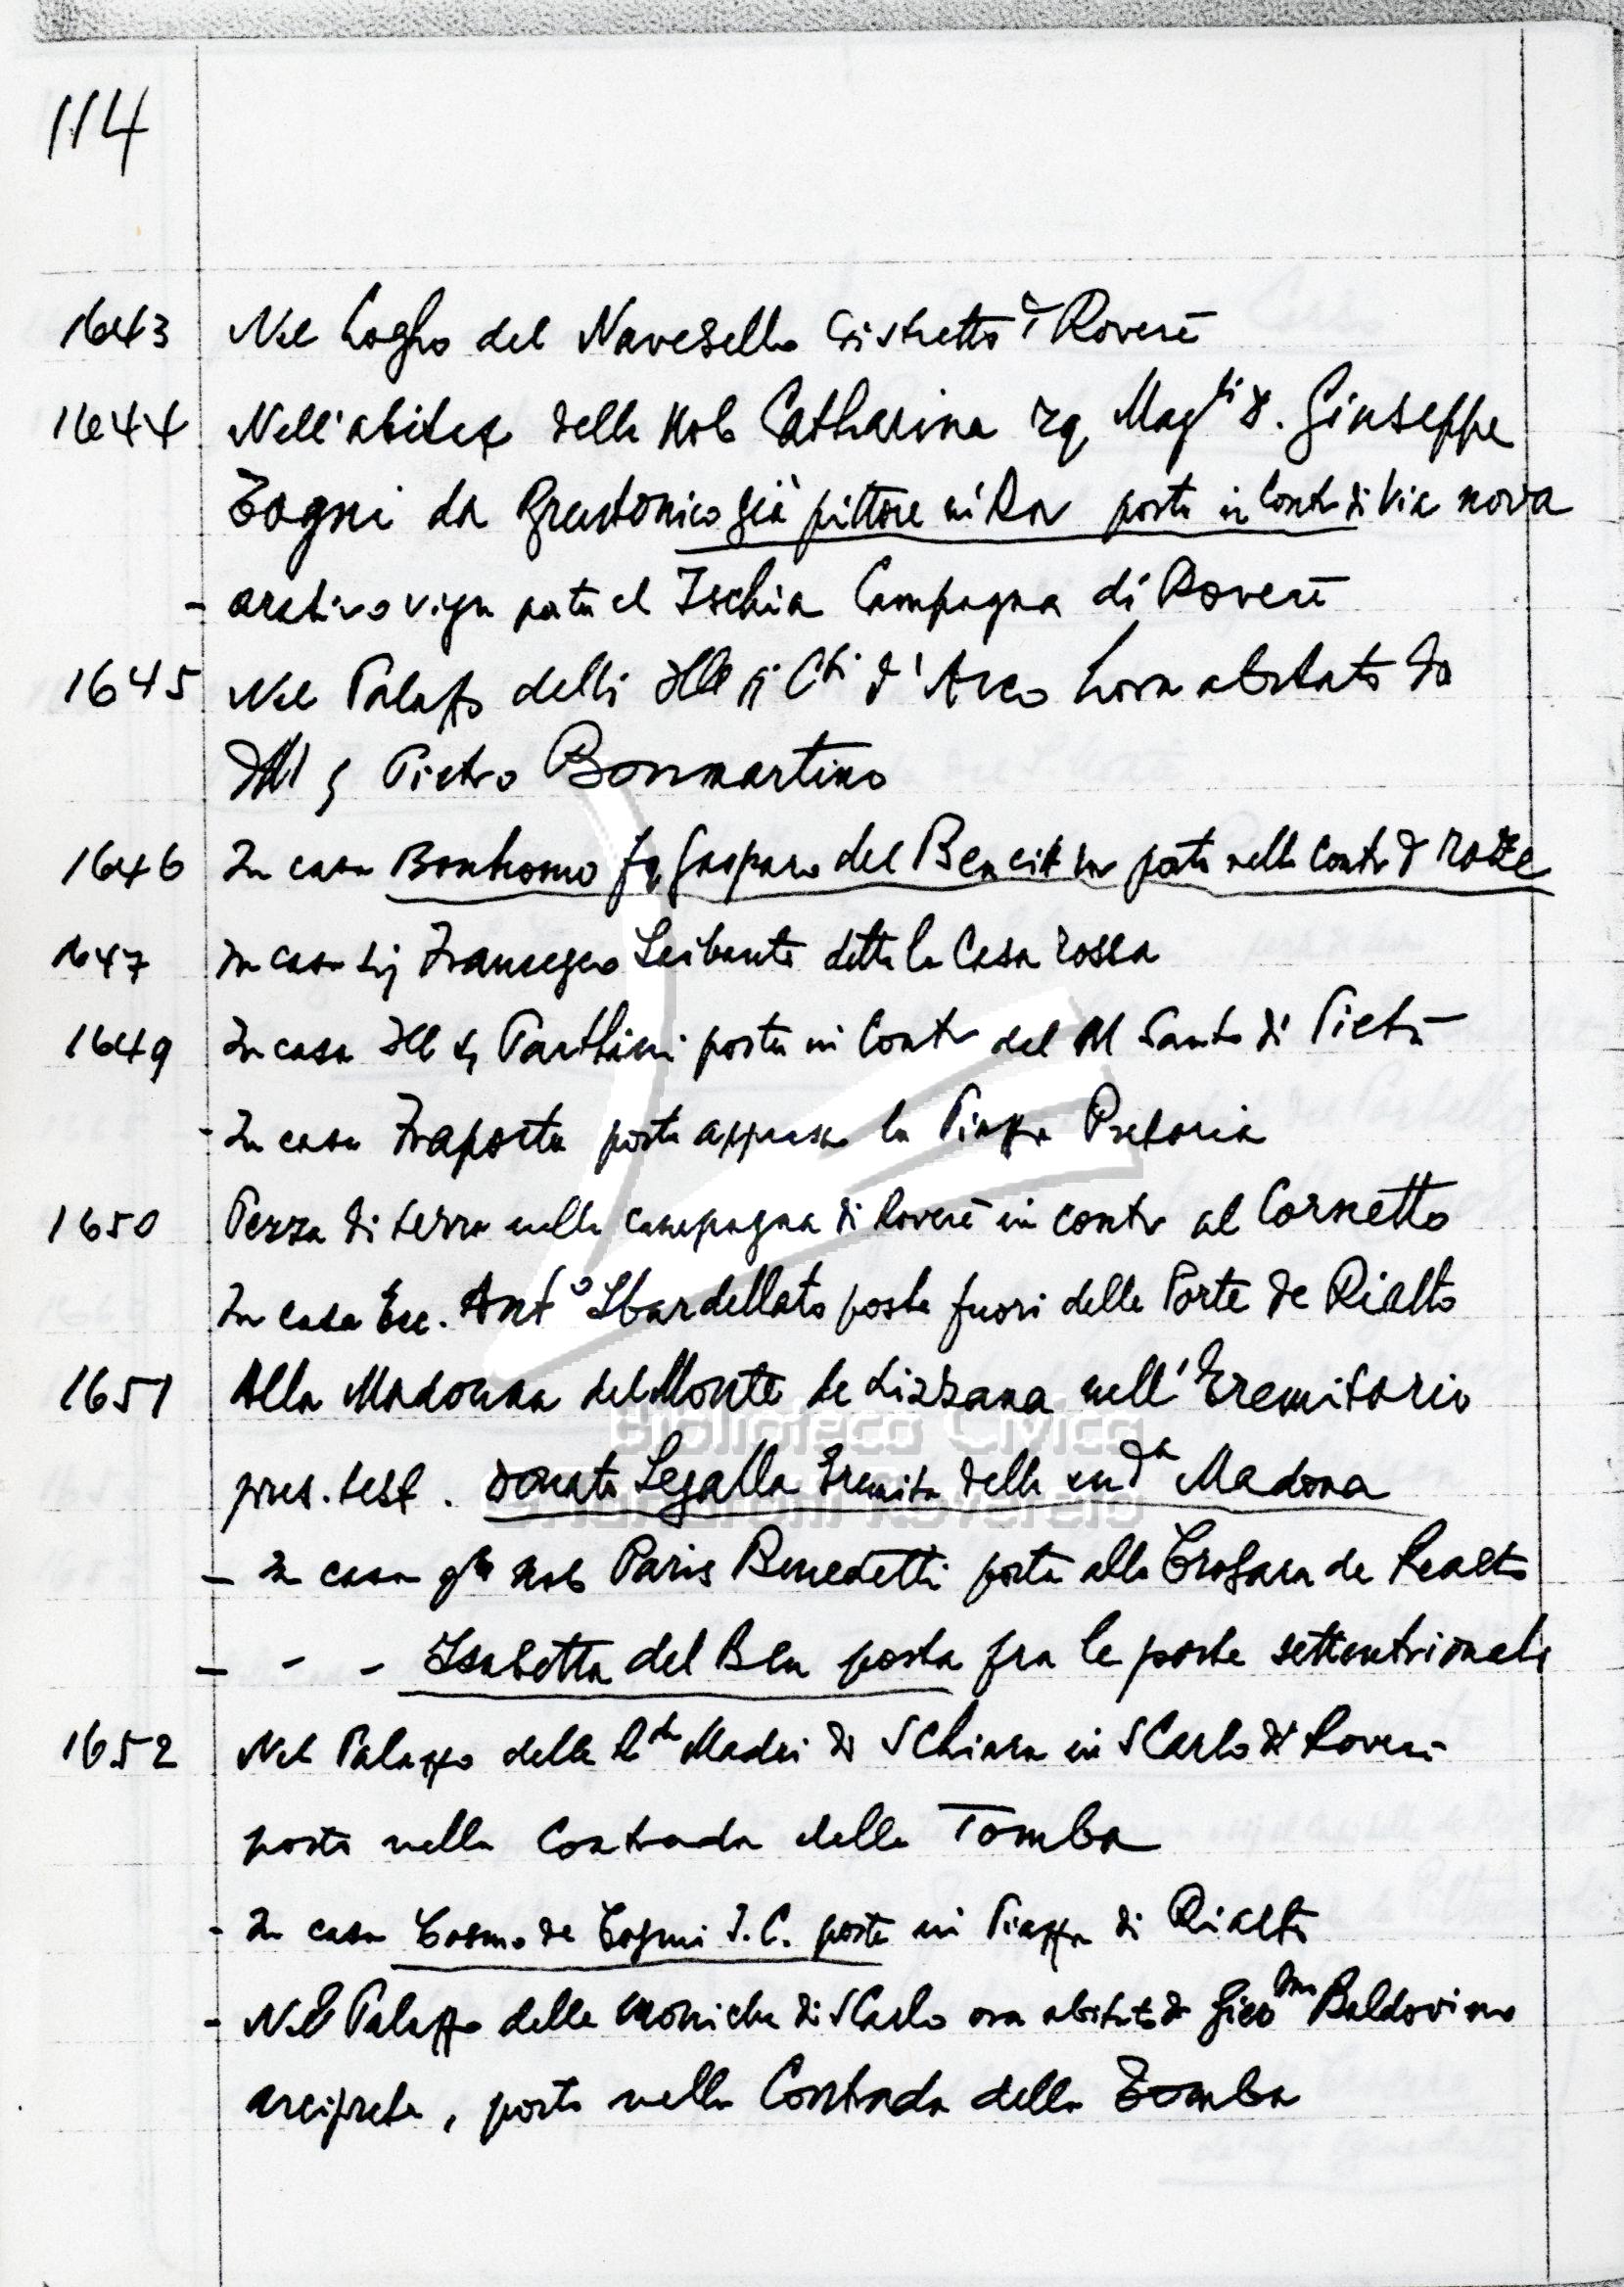 114
1643 Nel Logho del Navesello distretto di Roverè
1644 Nell'abitaz della Nob Catharina rq Mag.ti s. Giuseppe
Togni da Grestonico già pittore in Ro posta in Contr di Via nova
- arativo vign posta al Ischia Campagna di Roverè
1645 Nel Palazzo delli Ill Cti d'Arco hora abitato da
Pietro Bonmartino
1646 In casa Bonhomo fq Gasparo del Ben posta nella Contr d rozze
1647 In casa sig Francesco Leibante detta la Casa rossa
1649 In casa Ill s Parthini posta in Contr del M Santo di Pietà
- In casa Fraporta posta appresso la Piazza Pretoria
1650 Pezza di terra nella campagna di Roverè in contr al Cornetto
In casa Ecc. Anto Sbardellato posta fuori delle Porte de Rialto
1651 Alla Madonna del Monte de Lizzana nell'Eremitorio
pres. test. Donato Segalla Eremita della Madona
- In casa qm Nob Paris Benedetti posta alla Crosara de Realto
- - - Isabetta del Ben posta fra le porte settentrionali
1652 Nel Palazzo delle Rde Madri di S Chiara in S Carlo di Roverè
posto nella Contrada della Tomba
- In casa Cosmo de Togni I.C. posta in Piazza di Rialto
- Nel Palazzo delle Moniche di S Carlo ora abitato da Baldovino
arciprete, posto nella Contrada della Tomba
Biblioteca Civica
Rovereto